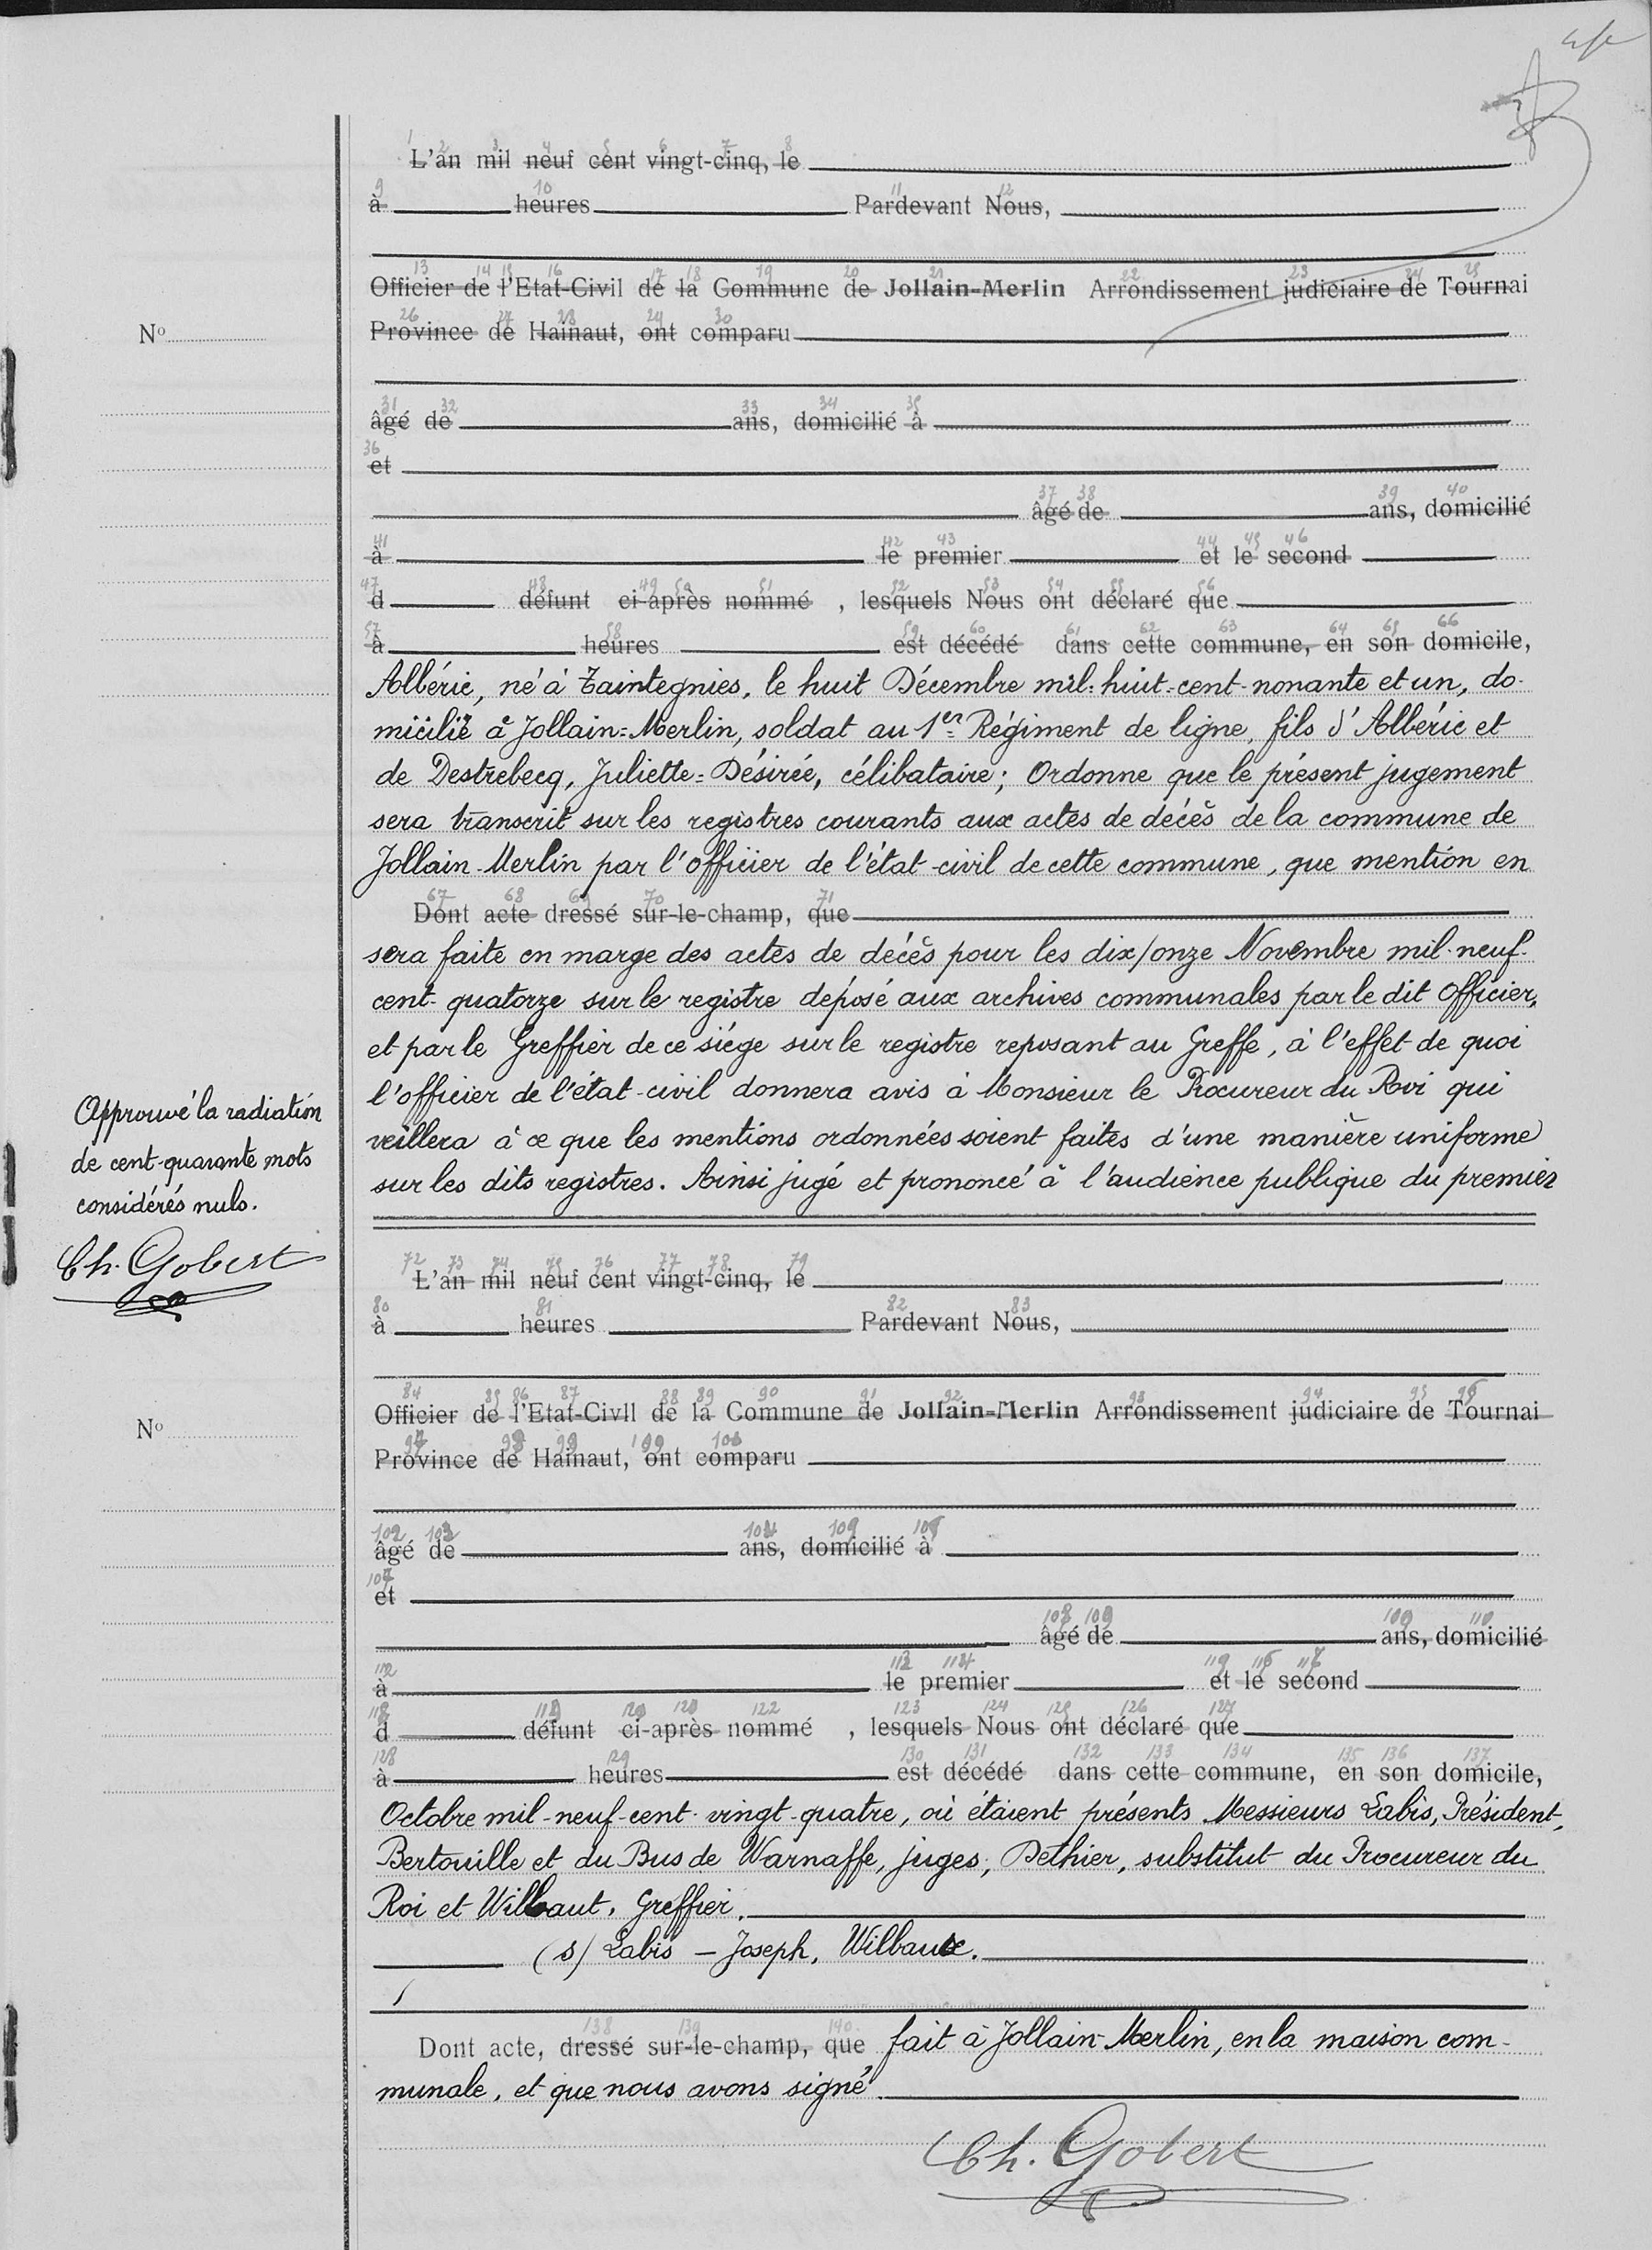 L'an mil neuf cent vingt-cinq, le
à heures Pardevant Nous,
Officier de l'Etat-Civil de la Commune de Jollain-Merlin Arrondissement judiciaire de Tournai
Nº
Province de Hainaut, ont comparu
âgé de ans, domicilié à
et
âgé de ans, domicilié
à le premier et le second
d défunt ci-après nommé , lesquels Nous ont déclaré que
à heures est décédé dans cette commune, en son domicile,
Albéric, né à Taintegnies, le huit Décembre mil-huit-cent-nonante et un, do-
micilié à Jollain=Merlin, soldat au 1er Régiment de ligne, fils d'Albéric et
de Destrebecq, Juliette=Désirée, célibataire; Ordonne que le présent jugement
sera transcrit sur les registres courants aux actes de décès de la commune de
Jollain-Merlin par l'officier de l'état-civil de cette commune, que mention en
Dont acte dressé sur-le-champ, que
sera faite en marge des actes de décès pour les dix/onze Novembre mil-neuf-
cent-quatorze sur le registre déposé aux archives communales par le dit officier,
et par le Greffier de ce siége sur le registre reposant au Greffe, à l'effet de quoi
l'officier de l'état-civil donnera avis à Monsieur le Procureur du Roi qui
veillera à ce que les mentions ordonnées soient faites d'une manière uniforme
sur les dits registres. Ainsi jugé et prononcé à l'audience publique du premier
Approuvé la radiation
de cent-quarante mots
considérés nuls.
Ch. Gobert
L'an mil neuf cent vingt-cinq, le
à heures Pardevant Nous,
Officier de l'Etat-Civil de la Commune de Jollain-Merlin Arrondissement judiciaire de Tournai
Nº
Province de Hainaut, ont comparu
âgé de ans, domicilié à
et
âgé de ans, domicilié
à le premier et le second
d défunt ci-après nommé , lesquels Nous ont déclaré que
à heures est décédé dans cette commune, en son domicile,
Octobre mil-neuf-cent-vingt-quatre, où étaient présents Messieurs Labis, Président,
Bertouille et du Bus de Warnaffe, juges, Dethier, substitut du Procureur du
Roi et Wilbaut, Greffier.
(s) Labis – Joseph, Wilbaux.
Dont acte, dressé sur-le-champ, que fait à Jollain-Merlin, en la maison com-
munale, et que nous avons signé.
Ch. Gobert